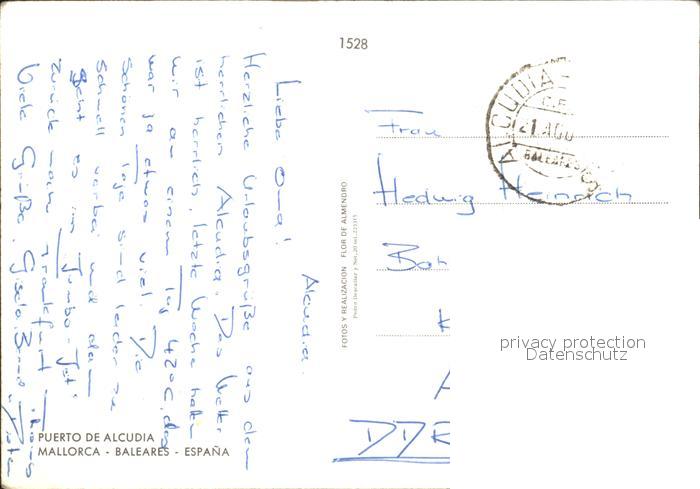 1528
Alcudia.
Liebe Oma!
Herzliche Urlaubsgrüße aus dem
herrlichen Alcudia. Das Wetter
ist herrlich, letzte Woche hatten
wir an einem Tag 42°C, das
war ja etwas viel. Die
schönen Tage sind leider zu
schnell vorbei und dann
geht es im "Jumbo-Jet"
zurück nach Frankfurt.
Viele Grüße Gisela, Bernd
PUERTO DE ALCUDIA
MALLORCA - BALEARES - ESPAÑA
FOTOS Y REALIZACION FLOR DE ALMENDRO
ALCUDIA
21 AGO
BALEARES
Frau
Hedwig Heinrich
DDR
privacy protection
Datenschutz